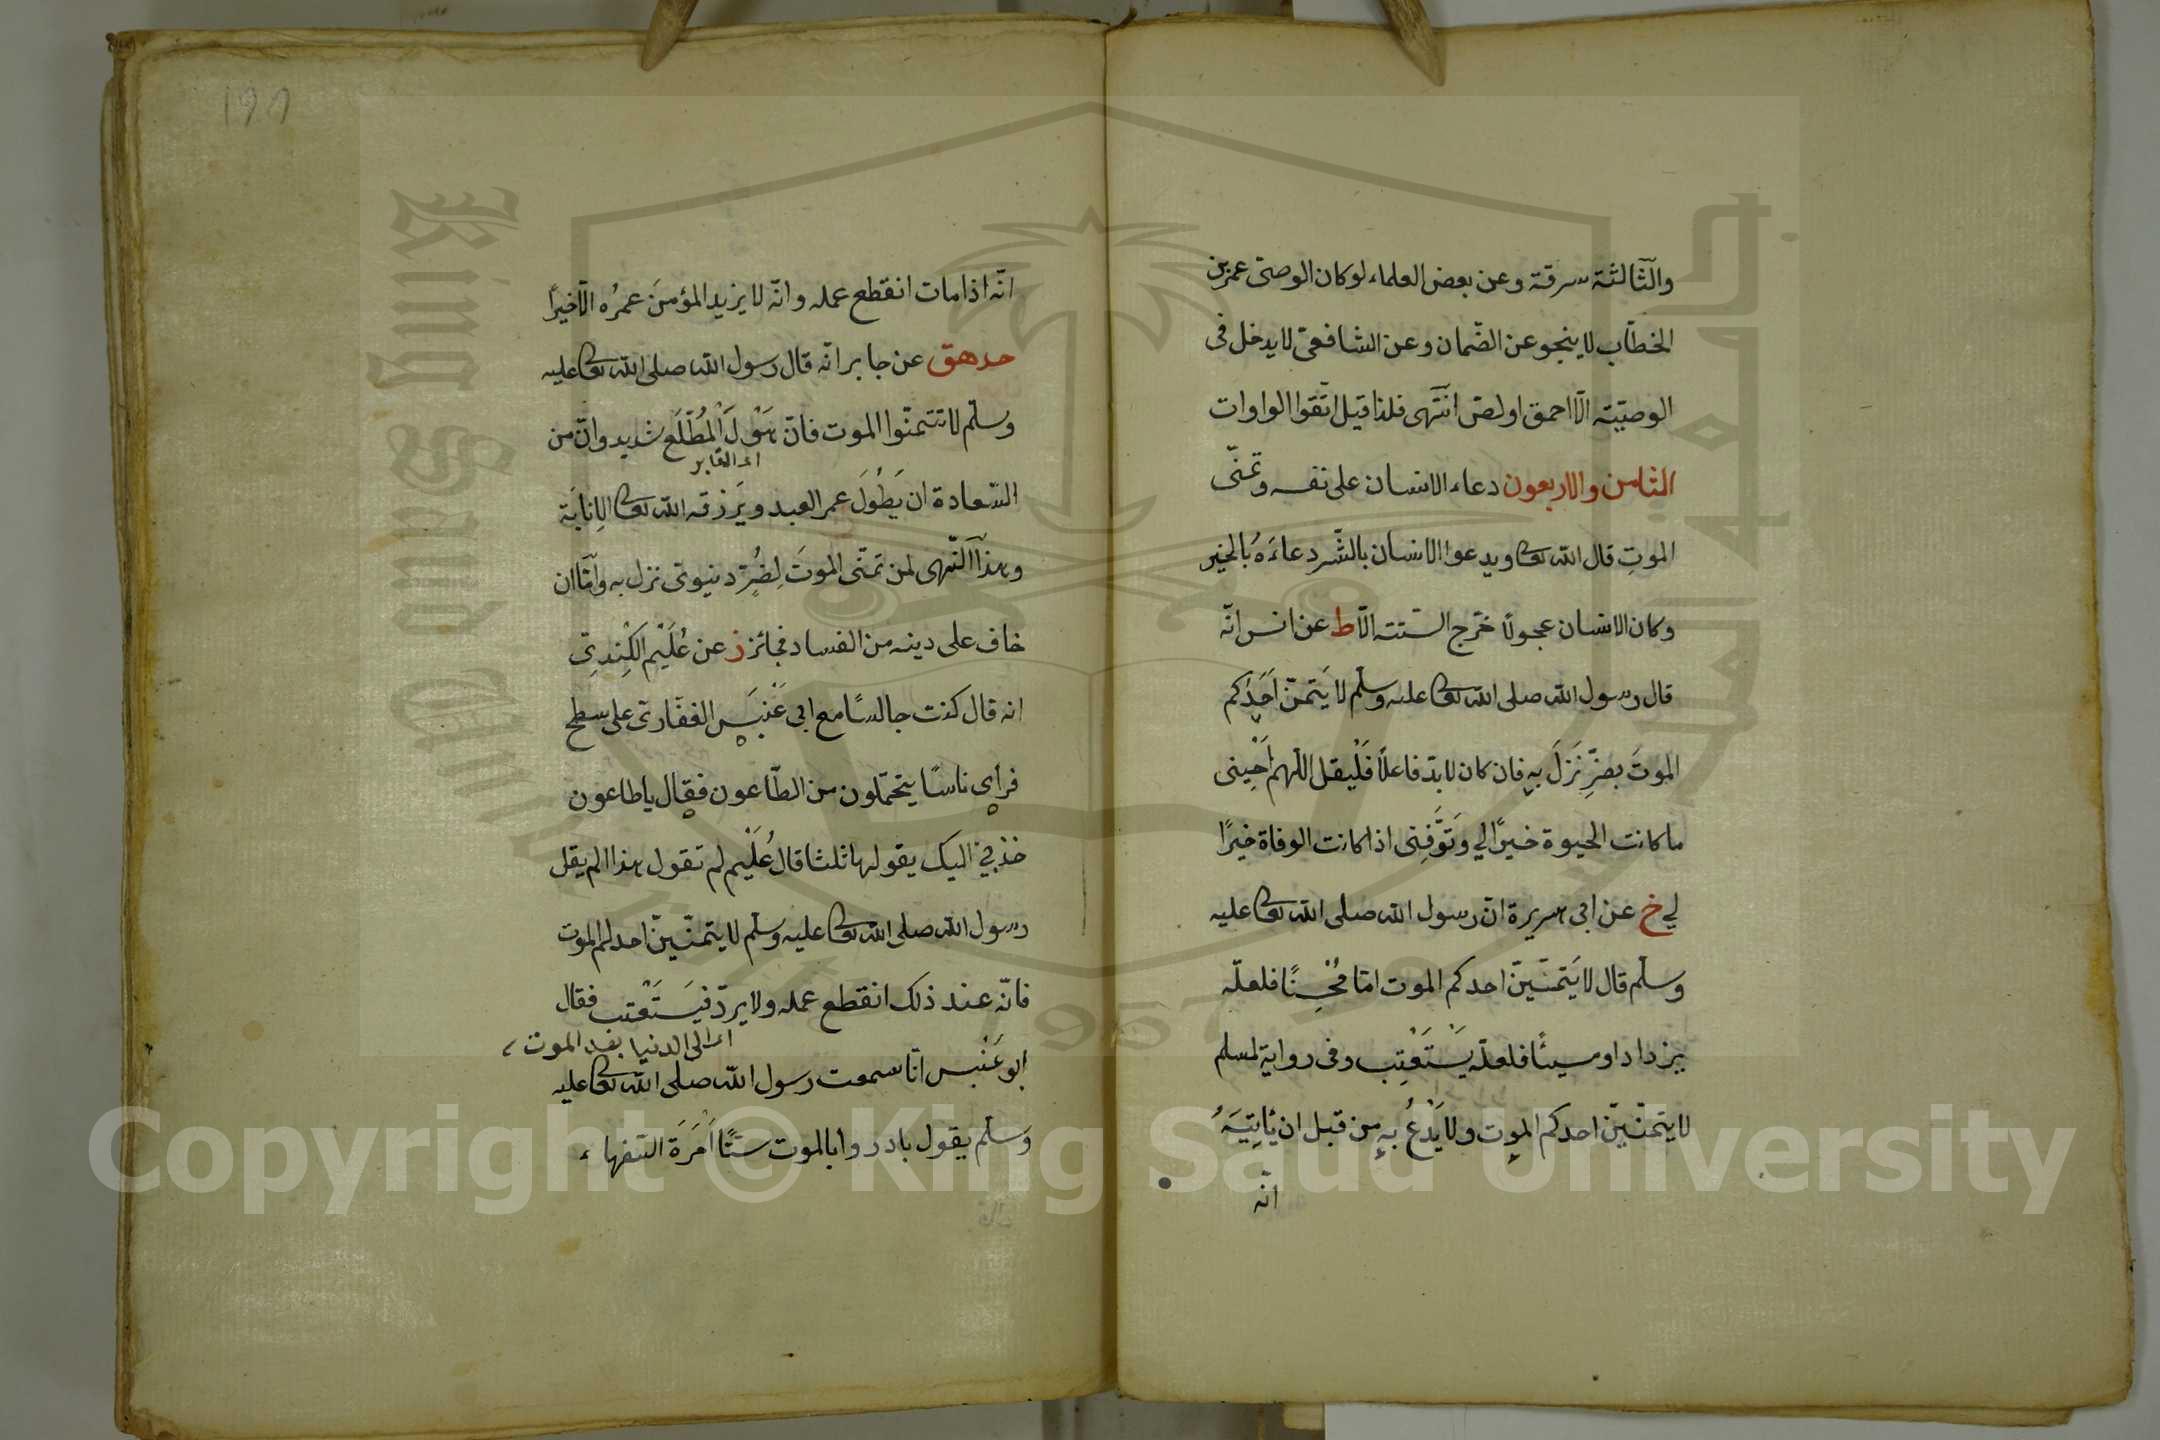 والثّالثة سرقة وعن بعض العلماء لو كان الوصىّ عمر بن
الخطّاب لا ينجو عن الضّمان وعن الشافعىّ لا يدخل فى
الوصيّته الّا احمق او لصّ انتَهى فلذا قيل اتّقوا الواوات
الثامن والاربعون دعاء الانسان على نفسه وتمنّى
الموتِ قال الله تعالى ويدعوا الانسان بالشّر دعاءَهُ بالخير
وكان الانسان عجولًا خرّج الستته الّا ط عن انس انّه
قال رسول الله صلى الله تعالى عليه وسلّم لا يَتمنّ اَحَدُكم
الموتَ بضرٍّ نَزَلَ بهِ فان كان لا بدّ فاعلًا فَلْيقل اللّهم اَحْيِنى
ما كانت الحيوة خيرًا لي وَتَوَفَّنِى اذا كانت الوفاة خيرًا
لي خ عن ابى هريرة انّ رسول الله صلى الله تعالى عليه
وسلّم قال لا يَتمنّينّ احدكم الموت امّا مُحْسِنًا فلعلّه
يزداد او مسيئًا فلعلّه يَسْتَعْتِب وفى رواية لمسلم
لا يتمنّينّ احدكم الموت ولا يَدْعُ بهِ مِن قبل ان يأتِيَهُ
انّه
١٩٨
انّه اذا مات انقطع عمله وانّه لا يزيد المؤمنَ عمرُه الّا خيرًا
حد هق عن جابر انّه قال رسول الله صلى الله تعالى عليه
وسلّم لا تتمنّوا الموت فانّ هَوْلَ الْمُطَّلَعِ شديد وانّ من
اى القابر
السّعادة ان يَطُولَ عمر العبد ويَرزقه الله تعالى الاِنابَة
وهذا النّهى لمن تمنّى الموتَ لِضُرٍّ دنيوىّ نزل به وامّا ان
خاف على دينه من الفساد فجائز ز عن عُلَيْم الكِنْدِىّ
انه قال كنت جالسًا مع ابى عَنْبَس الغفّارىّ على سطح
فرأى ناسًا يتحمّلون من الطّاعون فقال يا طاعون
خذنى اليك يقولها ثلثا قال عُلَيْم لم تقول هذا الم يقل
رسول الله صلى الله تعالى عليه وسلّم لا يتمنّينّ احدكم الموت
فانّه عند ذلك انقطع عمله ولا يردّ فيَسْتَعْتِب فقال
اى الى الدنيا بعد الموت
ابو عَنْبس انّا سمعت رسول الله صلى الله تعالى عليه
وسلّم يقول بادروا بالموت ستًّا اَمْرَةَ السّفهاء
King Saud University
1957
Copyright © King Saud University